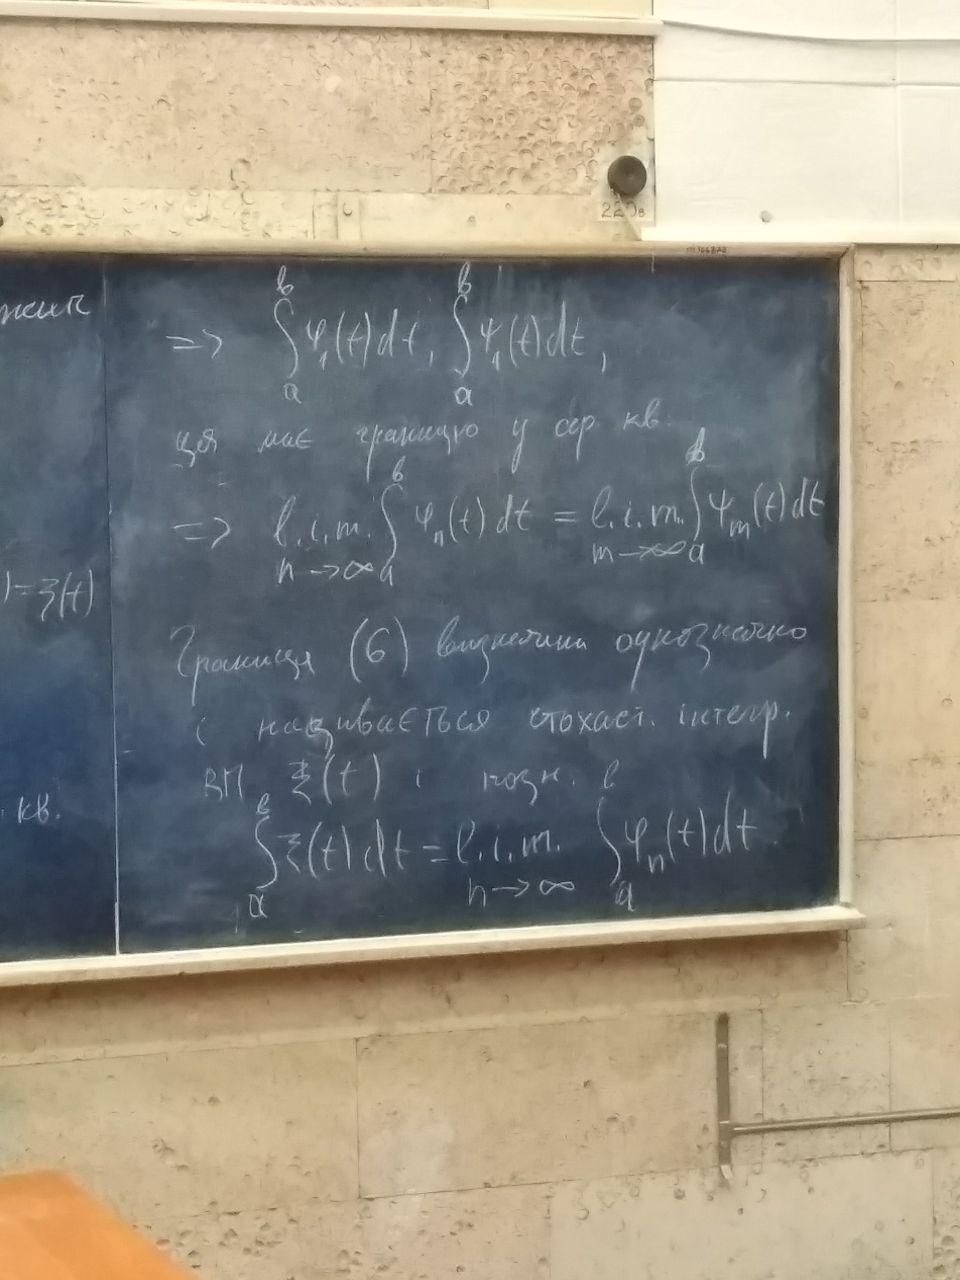 220в
⇒ ∫ₐᵇ φ₁(t)dt, ∫ₐᵇ ψ₁(t)dt,
ця має границю у сер кв.
⇒ l.i.m. n→∞ ∫ₐᵇ φₙ(t)dt = l.i.m. m→∞ ∫ₐᵇ ψₘ(t)dt
)=ξ(t)
Границя (6) визначена однозначно
і називається стохаст. інтегр.
ВП ξ(t) і позн.
кв.
∫ₐᵇ ξ(t)dt = l.i.m. n→∞ ∫ₐᵇ φₙ(t)dt